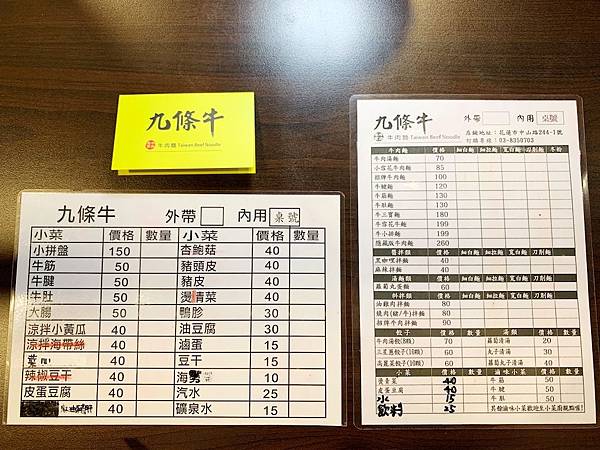 九條牛
牛肉麵 Taiwan Beef Noodle
九條牛 外帶 內用 桌號
小菜 價格 數量 小菜 價格 數量
小拼盤 150 杏鮑菇 40
牛筋 50 豬頭皮 40
牛腱 50 豬皮 40
牛肚 50 燙青菜 40
大腸 50 鴨胗 30
涼拌小黃瓜 40 油豆腐 30
涼拌海帶絲 40 滷蛋 15
40 豆干 15
辣椒豆干 40 海 10
皮蛋豆腐 40 汽水 25
40 礦泉水 15
九條牛
牛肉麵 Taiwan Beef Noodle
外帶 內用 桌號
店鋪地址：花蓮市中山路244-1號
訂購專線：03-8350703
牛肉麵 價格 細白麵 細拉麵 寬白麵 刀削麵 冬粉
牛肉湯麵 70
小雪花牛肉麵 85
招牌牛肉麵 100
牛腱麵 120
牛筋麵 120
牛肚麵 130
牛三寶麵 180
雪花牛肉麵 199
牛小排麵 199
隱藏版牛肉麵 260
醬拌類 價格 細白麵 細拉麵 寬白麵 刀削麵
黑咖哩拌麵 40
麻辣拌麵 40
湯麵類 價格 細白麵 細拉麵 寬白麵 刀削麵
蘿蔔丸蛋麵 60
料拌類 價格 細白麵 細拉麵 寬白麵 刀削麵
油雞肉拌麵 80
燒肉(豬/牛)拌麵 80
招牌牛肉拌麵 90
餃子 價格 數量 湯類 價格 數量
牛肉湯餃(8顆) 70 蘿蔔清湯 20
三星蔥餃子(10顆) 60 丸子清湯 30
高麗菜餃子(10顆) 60 丸子湯 50
小菜 價格 數量 滷味小菜 價格 數量
燙青菜 40 牛筋 50
皮蛋豆腐 40 牛腱 50
水 15 牛肚 50
飲料 25 其餘滷味小菜歡迎至小菜廚觀點喔!